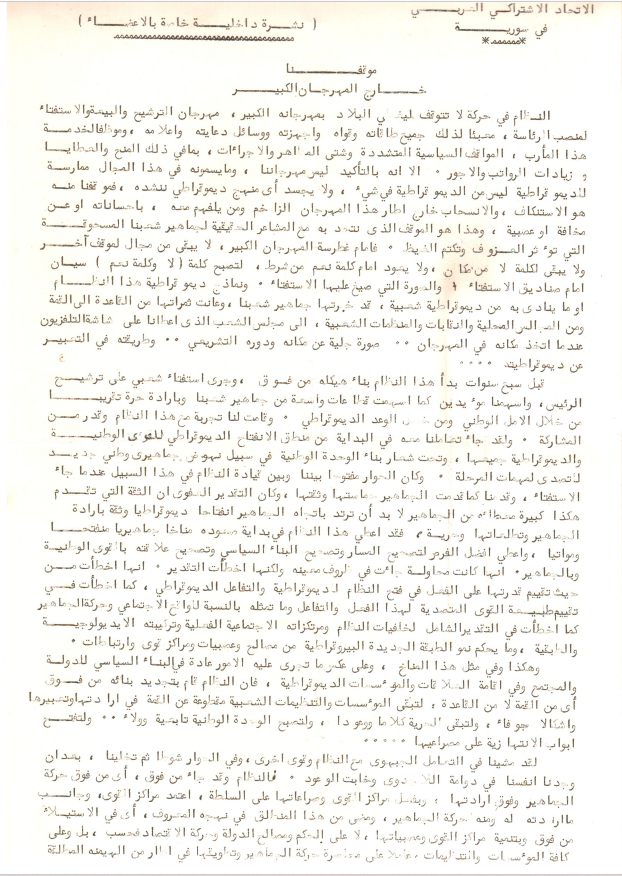 الاتحاد الاشتراكي العربي
في سورية
( نشرة داخلية خاصة بالاعضاء )
موقفنا
خارج المهرجان الكبير
النظام في حركة لا تتوقف ليغطي البلاد بمهرجانه الكبير ، مهرجان الترشيح والبيعة والاستفتاء
لمنصب الرئاسة ، معبئا لذلك جميع طاقاته وقواه واجهزته ووسائل دعايته واعلامه ، وموظفا لخدمة
هذا المأرب ، المواقف السياسية المتشددة وشتى المظاهر والاجراءات ، بما في ذلك المنح والعطايا
و زيادات الرواتب والاجور ٠ الا انه بالتأكيد ليس مهرجاننا ، وما يسمونه في هذا المجال ممارسة
للديموقراطية ليس من الديموقراطية في شيء ، ولا يجسد أى منهج ديموقراطي ننشده ، فموقفنا منه
هو الاستنكاف ، والانسحاب خارج اطار هذا المهرجان الزاخم ومن يلفهم معه ، باحساناته او عن
مخافة او عصبية ، وهذا هو الموقف الذى نتحد به مع المشاعر الحقيقية لجماهير شعبنا المسحوقة
التي تؤثر العزوف وتكتم الغيظ ٠ فامام غطرسة المهرجان الكبير ، لا يبقى من مجال لموقف آخر
ولا يبقى لكلمة لا من مكان ، ولا يعود امام كلمة نعم من شرط ، لتصبح كلمة ( لا وكلمة نعم ) سيان
امام صناديق الاستفتاء والصورة التي صيغ عليها الاستفتاء ٠ ونماذج ديموقراطية هذا النظام
او ما ينادى به من ديموقراطية شعبية ، قد خبرتها جماهير شعبنا ، وعانت ثمراتها من القاعدة الى القمة
ومن المجالس المحلية والنقابات والمنظمات الشعبية ، الى مجلس الشعب الذى اعطانا على شاشة التلفزيون
عندما اتخذ مكانه في المهرجان ٠٠ صورة جلية عن مكانه ودوره التشريعي ٠٠ وطريقته في التعبير
عن ديموقراطيته ٠٠٠٠
قبل سبع سنوات بدأ هذا النظام بناء هيكله من فوق ، وجرى استفتاء شعبي على ترشيح
الرئيس ، واسهمنا مؤيدين كما اسهمت قطاعات واسعة من جماهير شعبنا وبارادة حرة تقريبا
من خلال الامل الوطني ومن خلال الوعد الديموقراطي ٠ وقامت لنا تجربة مع هذا النظام وقدر من
المشاركة ٠ ولقد جاء تعاملنا معه في البداية من منطق الانفتاح الديموقراطي للقوى الوطنية
والديموقراطية جميعها ، وتحت شعار بناء الوحدة الوطنية في سبيل نهوض جماهيرى وطني جديد
للتصدى لمهمات المرحلة ٠ وكان الحوار مفتوحا بيننا وبين قيادة النظام في هذا السبيل عندما جاء
الاستفتاء ، وقدمنا كما قدمت الجماهير حماستها وثقتها ، وكان التقدير العفوى ان الثقة التي تقدم
هكذا كبيرة معطاءه من الجماهير لا بد أن ترتد باتجاه الجماهير انفتاحا ديموقراطيا وثقة بارادة
الجماهير وتطلعاتها وحرية ، فقد اعطي هذا النظام في بداية صعوده مناخا جماهيريا منفتحا
ومواتيا ، واعطي افضل الفرص لتصحيح المسار وتصحيح البناء السياسي وتصحيح علاقته بالقوى الوطنية
وبالجماهير ٠ انها كانت محاولة جاءت في ظروف معينه ولكنها اخطأت التقدير ٠ انها اخطأت من
حيث تقييم قدرتها على الفعل في فتح النظام للديموقراطية والتفاعل الديموقراطي ، كما اخطأت في
تقييم طبيعة القوى المتصدية لهذا الفعل والتفاعل وما تمثله بالنسبة للواقع الاجتماعي وحركة الجماهير
كما اخطأت في التقدير الشامل لخلفيات النظام ومرتكزاته الاجتماعية الفعلية وتركيبته الايديولوجية
والطبقية ، وما يحكم نمو الطبقة الجديدة البيروقراطية من مصالح وعصبيات ومراكز قوى وارتباطات ٠
وهكذا وفي مثل هذا المناخ ، وعلى عكس ما تجرى عليه الامور عادة في البناء السياسي للدولة
والمجتمع وفي اقامة العلاقات والمؤسسات الديموقراطية ، فان النظام قام بتجديد بنائه من فوق
أى من القمة لا من القاعدة ، لتبقى المؤسسات والتنظيمات الشعبية مقطوعة عن القمة في ارادتها وتعبيرها
واشكالا جوفاء ، ولتبقى الحرية كلاما ووعودا ، ولتصبح الوحدة الوطنية تابعية وولاء ٠٠ ولتفتح
ابواب الانتهازية على مصراعيها ٠٠٠٠٠
لقد مشينا في التعامل الجبهوى مع النظام وقوى اخرى ، وفي الحوار شوطا ثم تخلينا ، بعد ان
وجدنا انفسنا في دوامة اللاجدوى وخابت الوعود ٠ فالنظام وقد جاء من فوق ، أى من فوق حركة
الجماهير وفوق ارادتها ، وبفعل مراكز القوى وصراعاتها على السلطة ، اعتمد مراكز القوى ، وجانب
ما ارادته له ومنه حركة الجماهير ، ومضى من هذا المنطلق في نهجه المعروف ، أى في الاستيلاء
من فوق وبتنمية مراكز القوى وعصبياتها ، لا على الحكم ومصالح الدولة وحركة الاقتصاد فحسب ، بل وعلى
كافة المؤسسات والتنظيمات ، عاملا على محاصرة حركة الجماهير وتطويقها في اطار من الهيمنه المطلقة